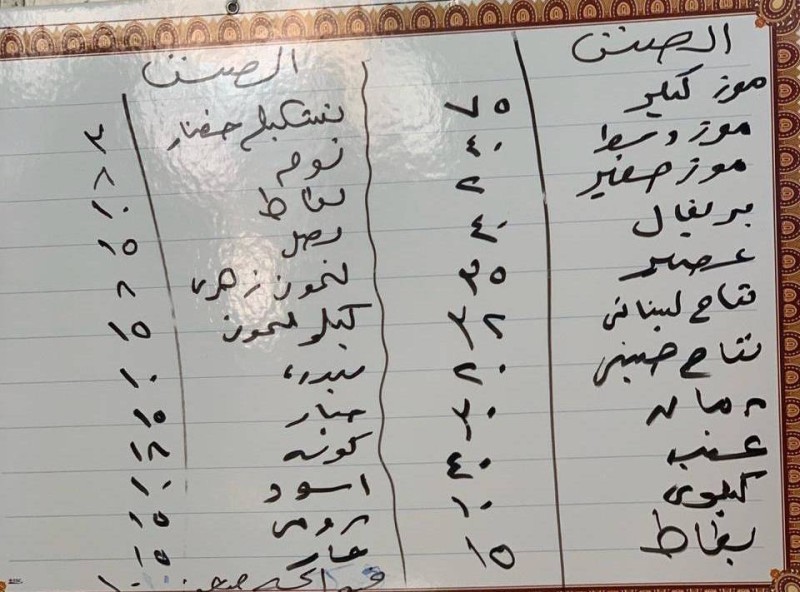 الصنف
موز كبير ٧٥
موز وسط ٤٠
موز صغير ٢
برتقال ٤٠
عصير ٣٥
تفاح لبناني ٣٢
تفاح صيني ٢٠
رمان ٣٠
عنب ٤٠
كيوي ١٠
بطاط ١٥
الصنف
تشكيلة خضار ٣
ثوم ٨
بطاط ١٠
بصل ١٥
ليمون زهرة
كيلو ليمون ١٥
١٠
خيار ١٥
كوسه ١٢
اسود ١٠
رومي ١٥
حار ١٥